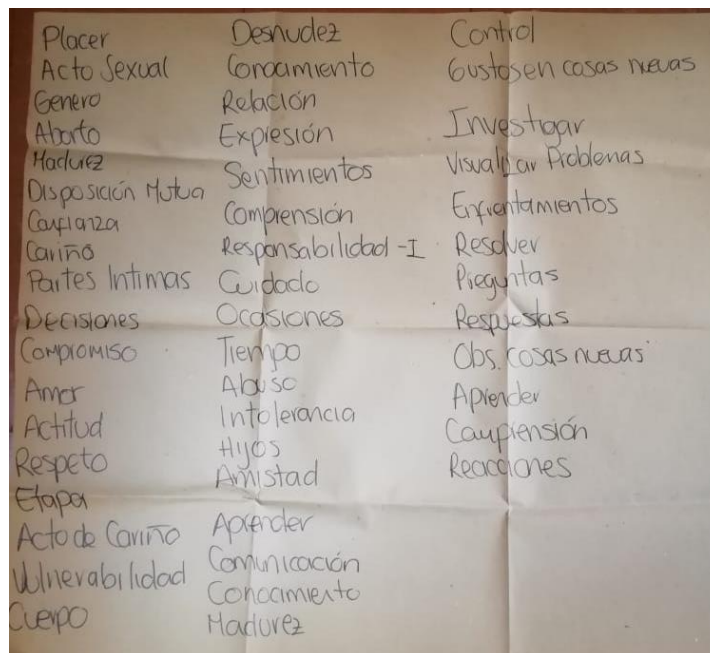 Placer
Acto Sexual
Genero
Aborto
Madurez
Disposición Mutua
Confianza
Cariño
Partes Intimas
Decisiones
Compromiso
Amor
Actitud
Respeto
Etapa
Acto de Cariño
Vulnerabilidad
Cuerpo
Desnudez
Conocamiento
Relación
Expresión
Sentimientos
Comprensión
Responsabilidad - I
Cuidado
Ocasiones
Tiempo
Abuso
Intolerancia
Hijos
Amistad
Aprender
Comunicación
Conocimiento
Madurez
Control
Gustos en cosas nuevas
Investigar
Visualizar Problemas
Enfrentamientos
Resolver
Preguntas
Respuestas
Obs. cosas nuevas
Aprender
Comprensión
Reacciones